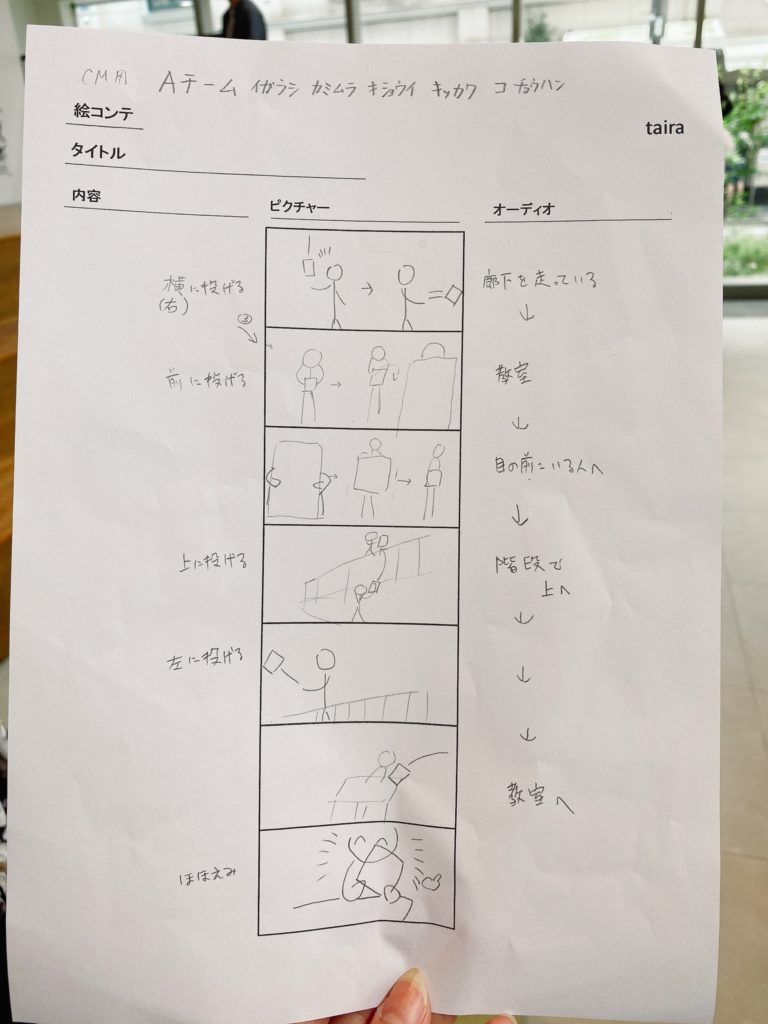 CM用 Aチーム イガラシ カミムラ キショウイ キッカワ コ チョウハン
絵コンテ
taira
タイトル
内容 ピクチャー オーディオ
横に投げる
(右)
廊下を走っている
↓
③
前に投げる
教室
↓
目の前にいる人へ
↓
上に投げる
階段で
上へ
↓
左に投げる
↓
↓
教室へ
ほほえみ